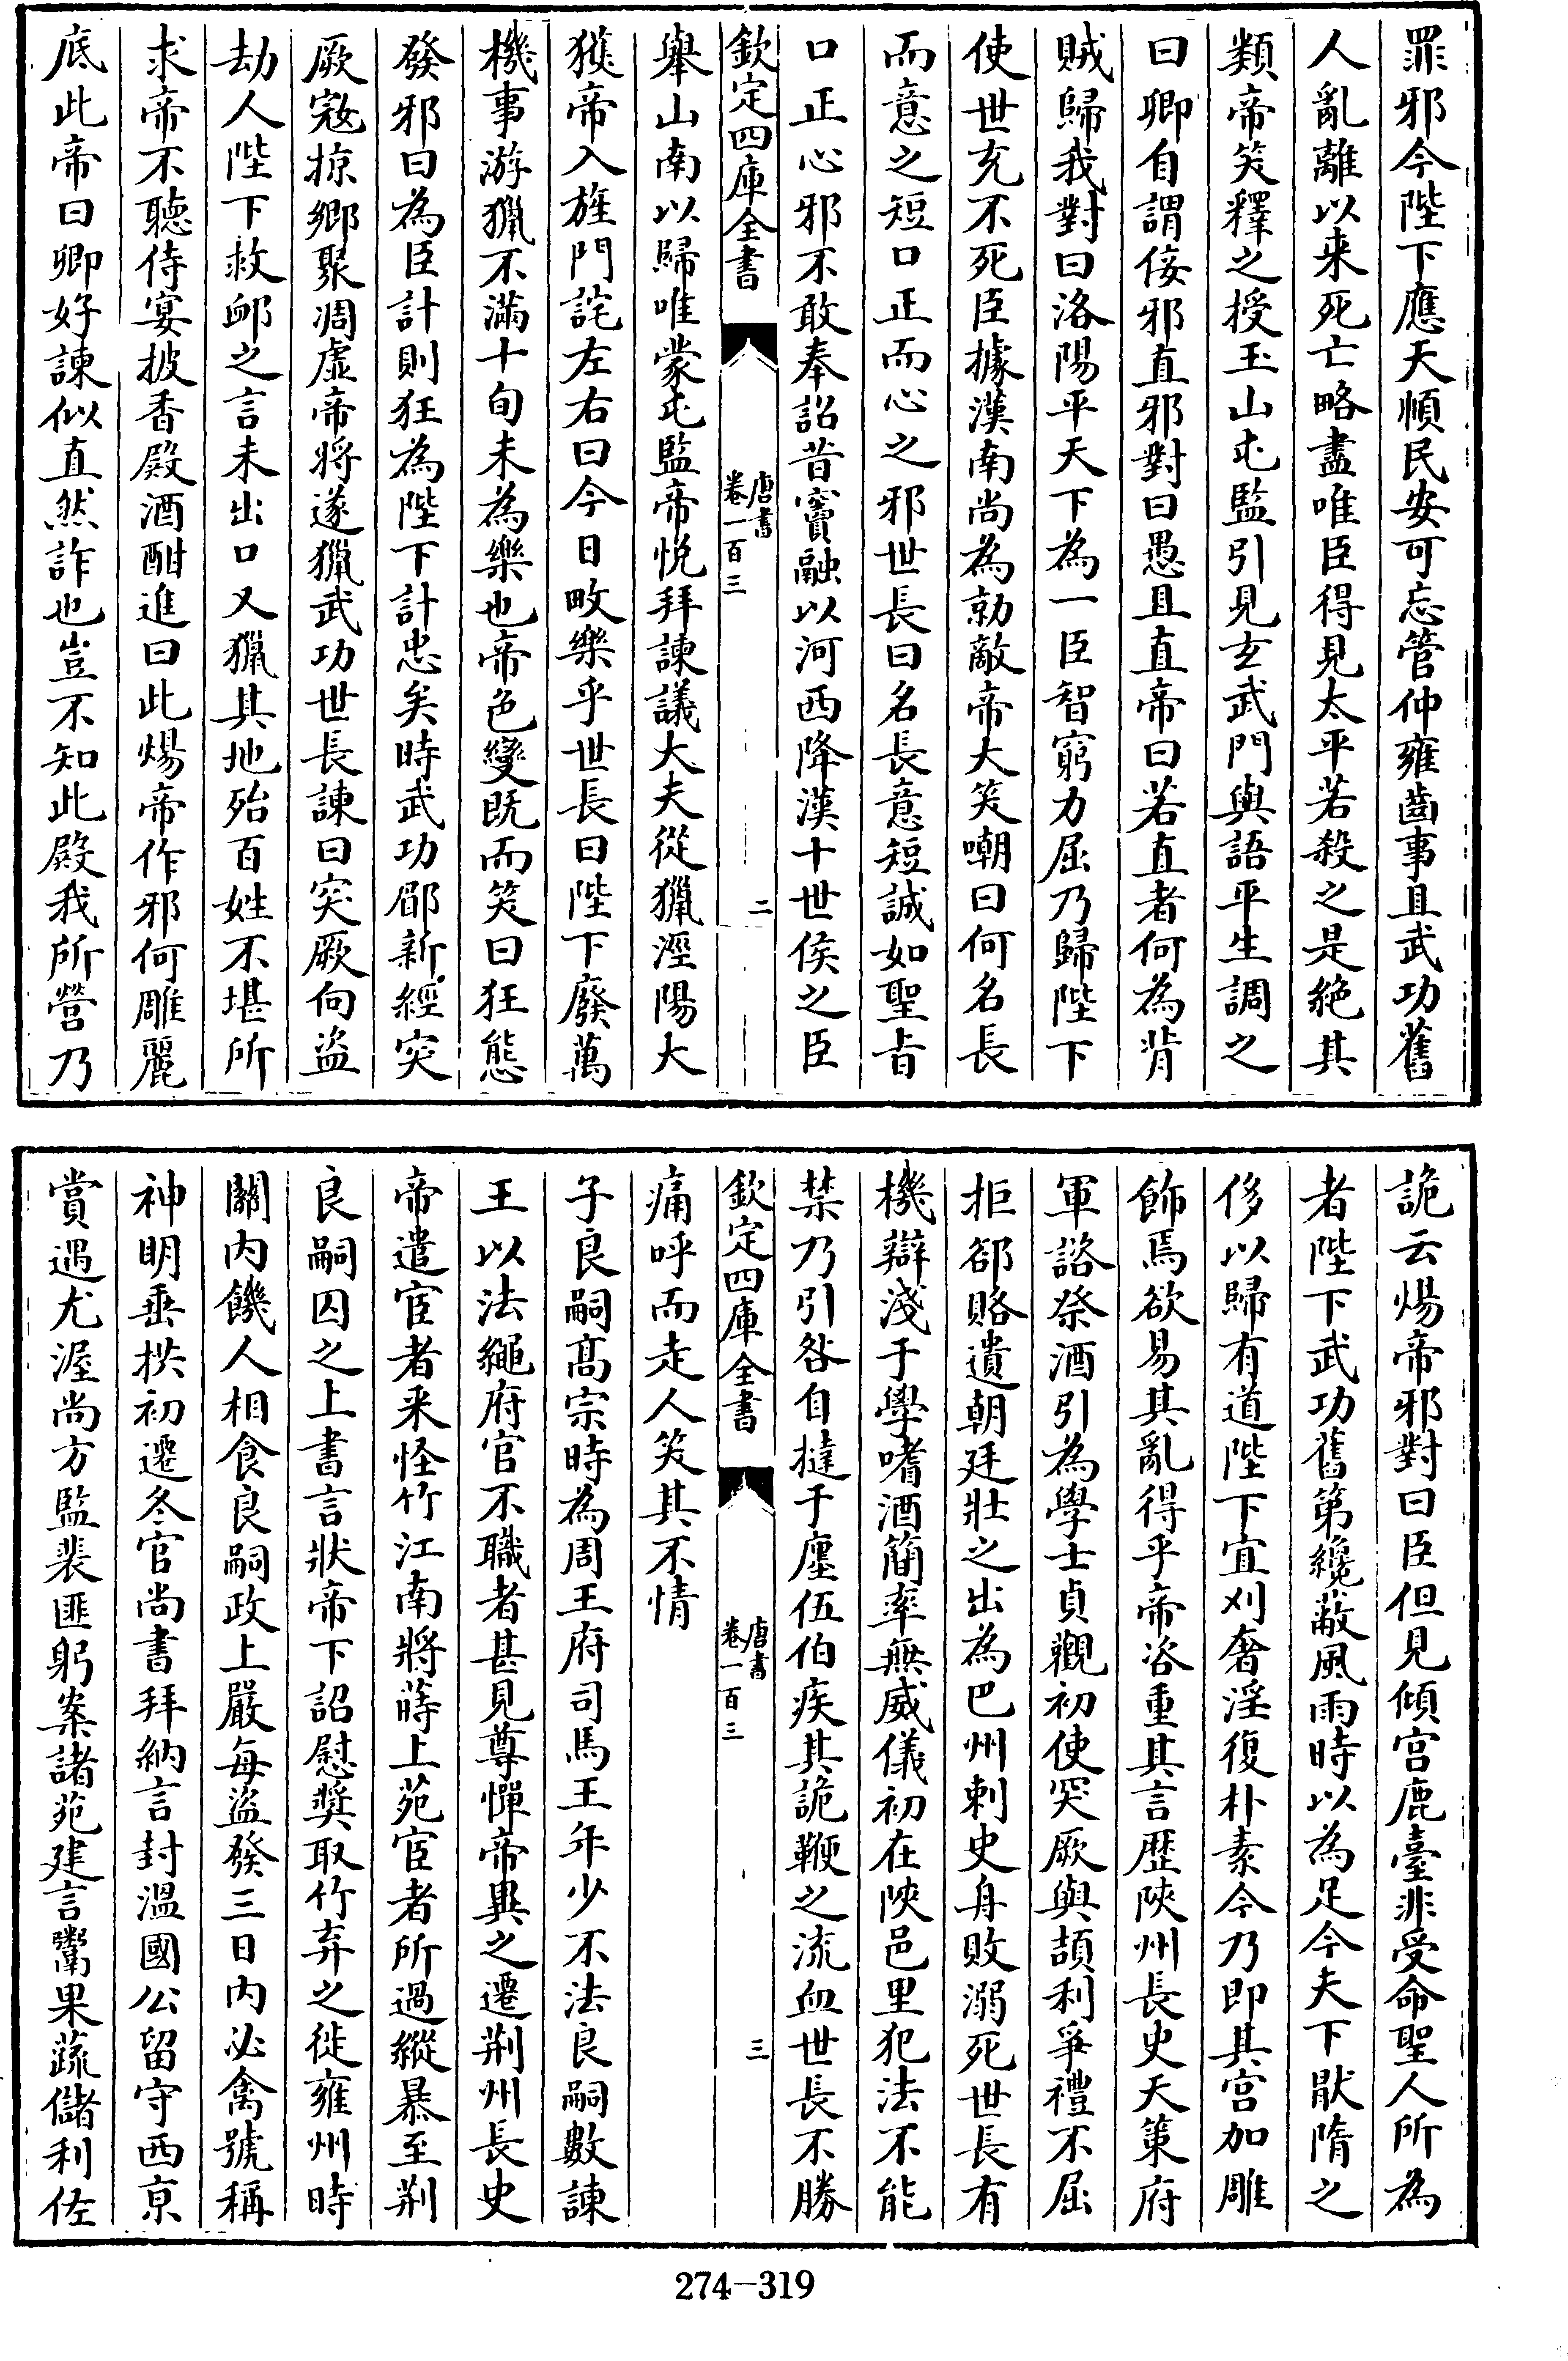 罪邪今陛下應天順民安可忘管仲雍齒事且武功舊
人亂離以来死亡略盡唯臣得見太平若殺之是絶其
類帝笑釋之授玉山屯監引見玄武門與語平生調之
曰卿自謂佞邪直邪對曰愚且直帝曰若直者何為背
賊歸我對曰洛陽平天下為一臣智窮力屈乃歸陛下
使世充不死臣據漢南尚為勍敵帝大笑嘲曰何名長
而意之短口正而心之邪世長曰名長意短誠如聖旨
口正心邪不敢奉詔昔竇融以河西降漢十世侯之臣
欽定四庫全書
唐書
卷一百三
二
舉山南以歸唯蒙屯監帝悅拜諫議大夫從獵涇陽大
獲帝入旌門詫左右曰今日畋樂乎世長曰陛下廢萬
機事游獵不滿十旬未為樂也帝色變既而笑曰狂態
發邪曰為臣計則狂為陛下計忠矣時武功郿新經突
厥寇掠鄉聚凋虛帝將遂獵武功世長諫曰突厥向盜
劫人陛下救卹之言未出口又獵其地殆百姓不堪所
求帝不聽侍宴披香殿酒酣進曰此煬帝作邪何雕麗
底此帝曰卿好諫似直然詐也豈不知此殿我所營乃
詭云煬帝邪對曰臣但見傾宫鹿臺非受命聖人所為
者陛下武功舊第纔蔽風雨時以為足今夫下厭隋之
侈以歸有道陛下宜刈奢淫復朴素今乃即其宫加雕
飾焉欲易其亂得乎帝咨重其言歷陜州長史天策府
軍諮祭酒引為學士貞觀初使突厥與頡利爭禮不屈
拒郤賂遺朝廷壯之出為巴州刺史舟敗溺死世長有
機辯淺于學嗜酒簡率無威儀初在陜邑里犯法不能
禁乃引咎自撻于廛伍伯疾其詭鞭之流血世長不勝
欽定四庫全書
唐書
卷一百三
三
痛呼而走人笑其不情
子良嗣髙宗時為周王府司馬王年少不法良嗣數諫
王以法繩府官不職者甚見尊憚帝異之遷荆州長史
帝遣宦者来怪竹江南將蒔上苑宦者所過縱暴至荆
良嗣囚之上書言狀帝下詔慰奬取竹弃之徙雍州時
關内饑人相食良嗣政上嚴每盜發三日内必禽號稱
神明垂拱初遷冬官尚書拜納言封溫國公留守西京
賞遇尤渥尚方監裴匪躬案諸苑建言鬻果蔬儲利佐
274—319